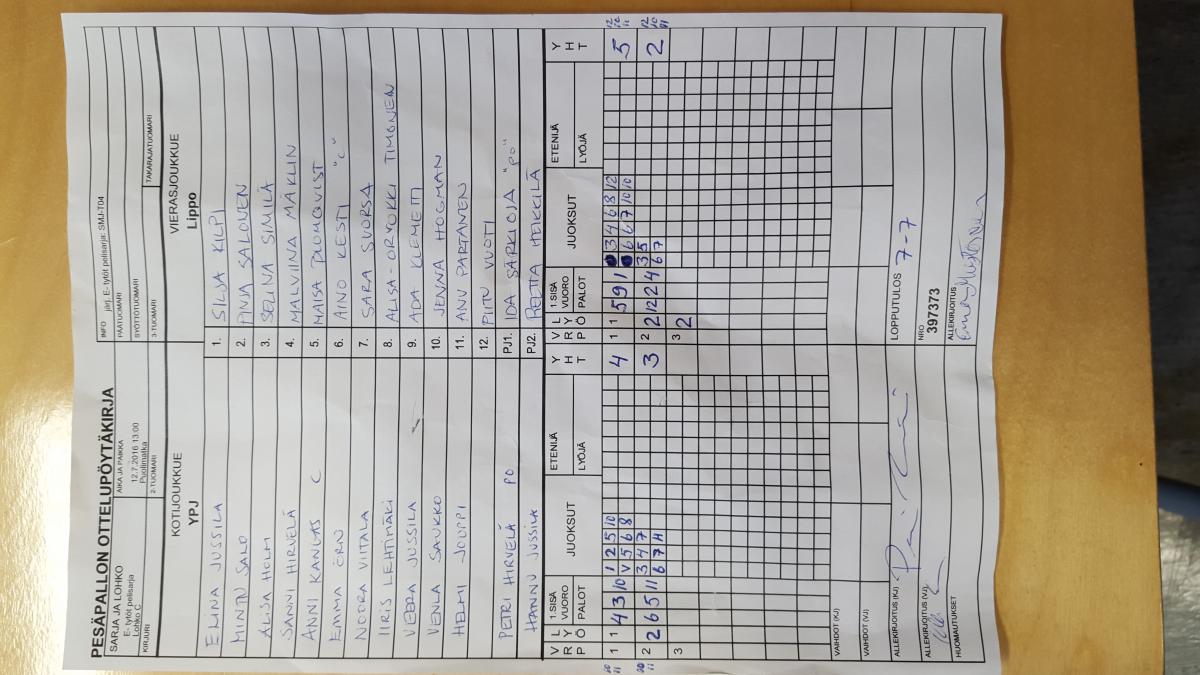 PESÄPALLON OTTELUPÖYTÄKIRJA
SARJA JA LOHKO
E- tytöt pelisarja
Lohko C
AIKA JA PAIKKA
12.7.2016 13:00
Puolimatka
INFO järj. E- tytöt pelisarja: SMJ-T04
PÄÄTUOMARI
SYÖTTÖTUOMARI
KIRJURI
2-TUOMARI
3-TUOMARI
TAKARAJATUOMARI
KOTIJOUKKUE
YPJ
VIERASJOUKKUE
Lippo
ELINA JUSSILA 1. SILJA KILPI
MINTTU SALO 2. PINJA SALONEN
ALISA HOLM 3. SELINA SIMILÄ
SANNI HIRVELÄ 4. MALVIINA MÄKLIN
ANNI KANGAS C 5. MAISA
EMMA ÖRN 6. AINO KESTI "C"
NOORA VIITALA 7. SARA SUORSA
IIRIS LEHTIMÄKI 8. ALISA-ORVOKKI TIMONEN
VEERA JUSSILA 9. ADA KLEMETTI
VENLA SAUKKO 10. JENNA HOGMAN
HELMI JOUPPI 11. ANU PARTANEN
12. PIITU VUOTI
PETRI HIRVELÄ PO PJ1. IDA SÄRKIOJA "PO"
HANNU JUSSILA PJ2. REETTA HEIKKILÄ
V R P L Y Ö 1.SISÄ VUORO PALOT JUOKSUT ETENIJÄ LYÖJÄ Y H T V R P L Y Ö 1.SISÄ VUORO PALOT JUOKSUT ETENIJÄ LYÖJÄ Y H T
1 1 4 3 10 1 2 5 10 4 1 1 5 9 1 3 4 6 8 12 5
V 5 6 8 6 6 7 10 10
2 2 6 5 11 3 4 7 3 2 2 12 2 4 3 5 2
6 7 H 6 7
3 3 2
VAIHDOT (KJ)
VAIHDOT (VJ)
ALLEKIRJOITUS (KJ)
LOPPUTULOS 7-7
ALLEKIRJOITUS (VJ)
NRO
397373
HUOMAUTUKSET
ALLEKIRJOITUS